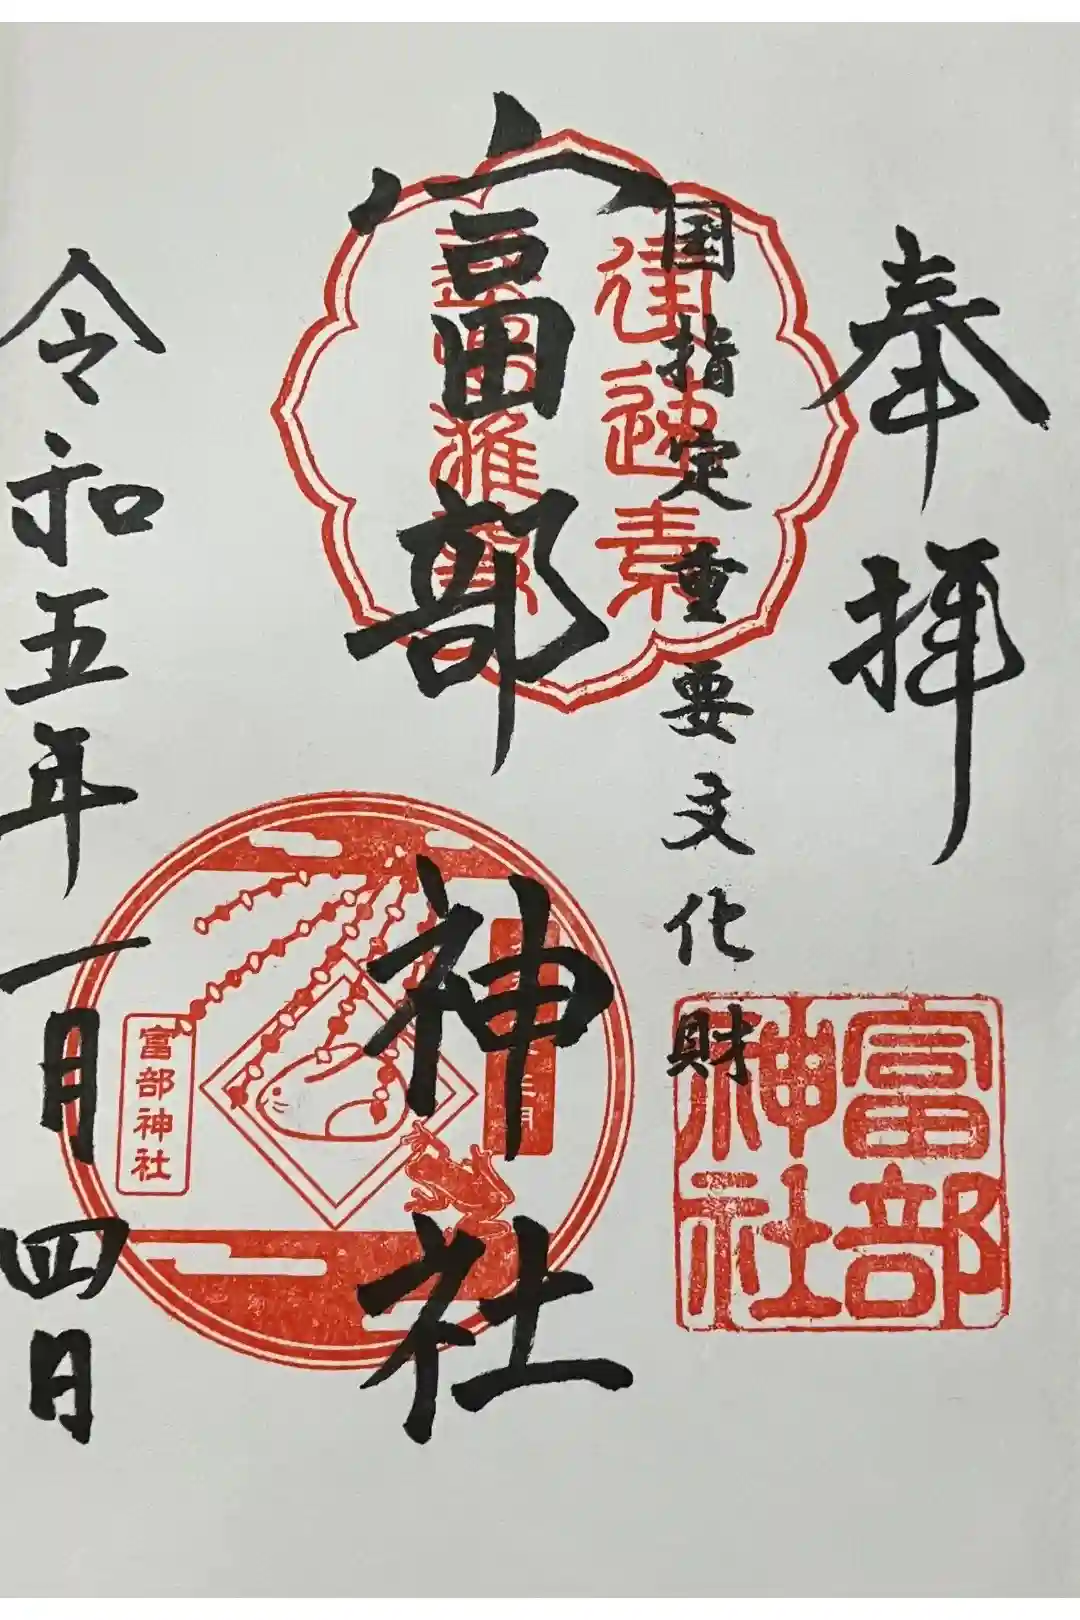 奉拝
国指定重要文化財
富部神社
富部神社
富部神社
令和五年一月四日